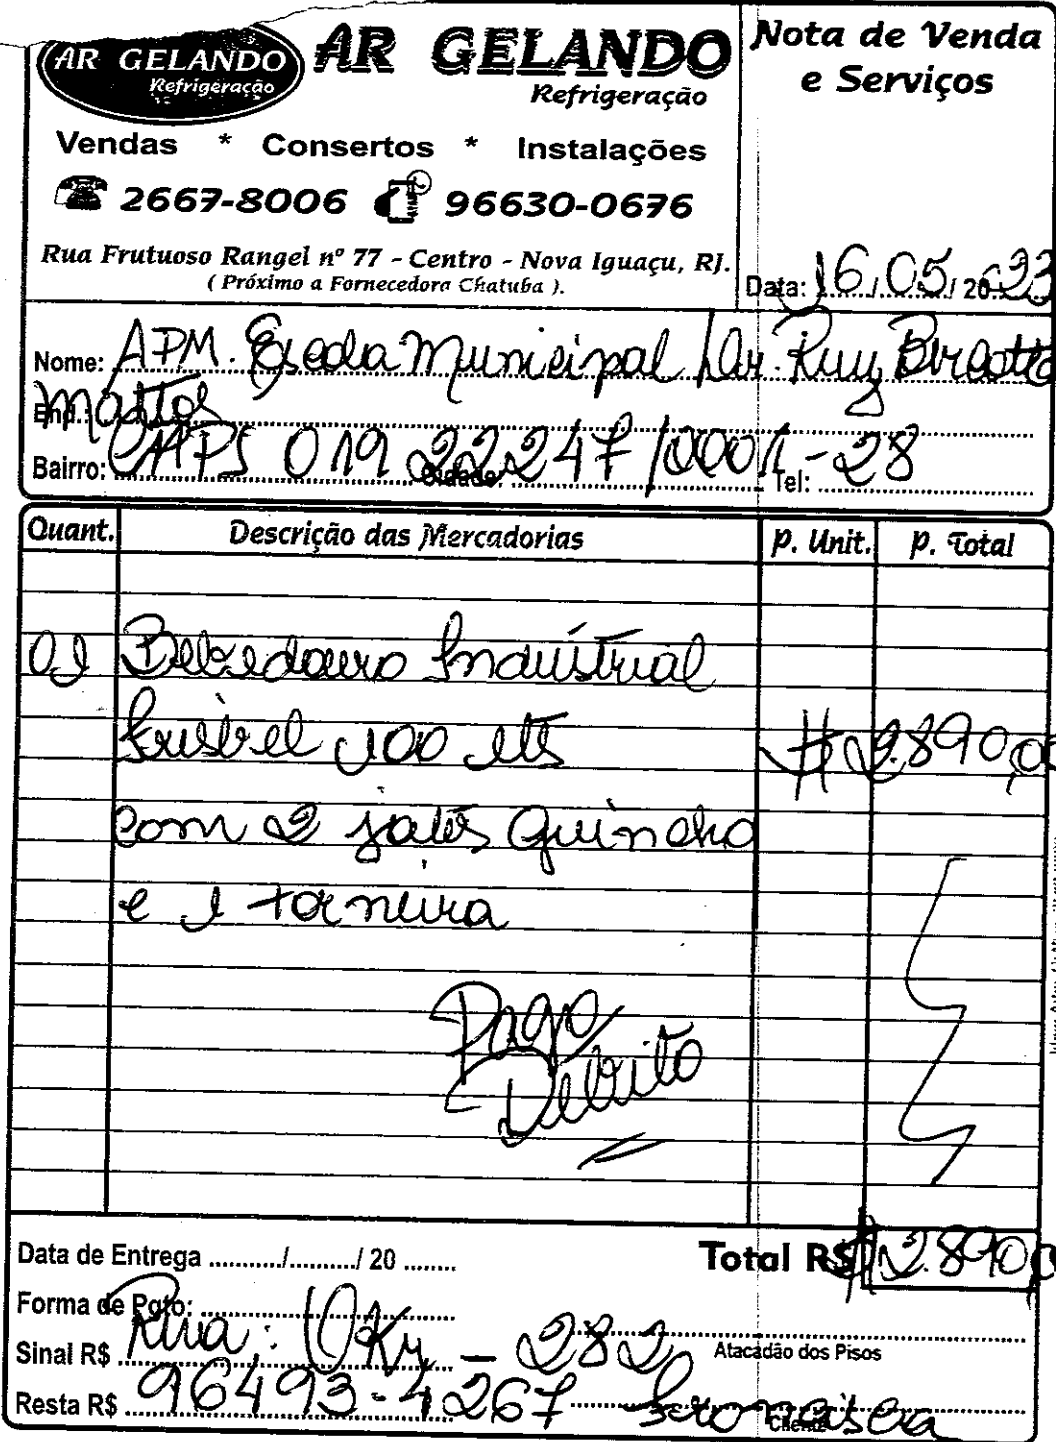 AR GELANDO
Refrigeração
AR GELANDO
Refrigeração
Vendas * Consertos * Instalações
2667-8006 96630-0676
Rua Frutuoso Rangel nº 77 - Centro - Nova Iguaçu, RJ.
( Próximo a Fornecedora Chatuba ).
Nota de Venda
e Serviços
Data: 16/05/2023
Nome: APM. Escola Municipal Dr. Ruy
End.: Mattos
Bairro: 019 22247/0001-28 Cidade: Tel:
Quant. Descrição das Mercadorias P. Unit. P. Total
01 Bebedouro Industrial
100 lts 2.890,00
com 2 jatos Guincho
e 1 torneira
Pago
Débito
Data de Entrega ............/............/ 20 ........ Total R$ 2.890,0
Forma de Pgto:
Sinal R$ Rua: - 282 Atacadão dos Pisos
Resta R$ 96493-4267
Cliente